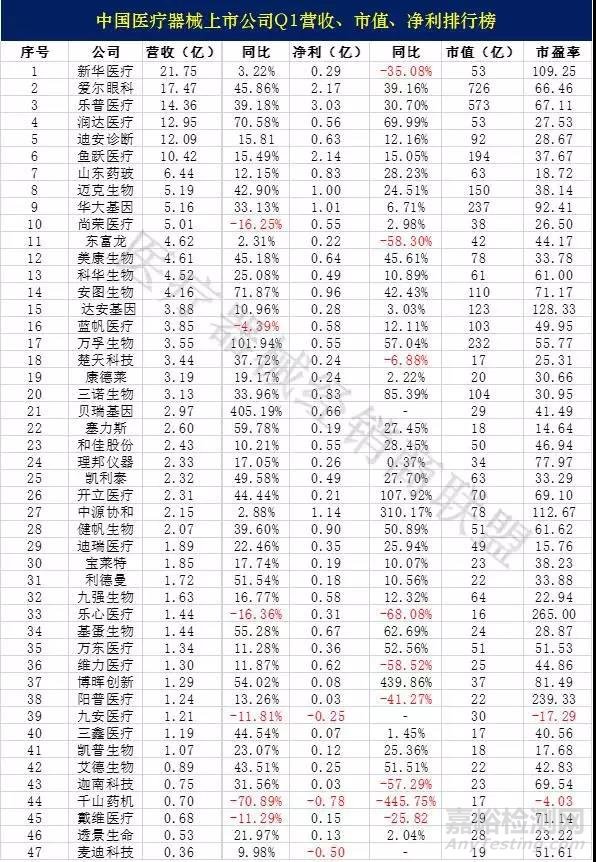 中国医疗器械上市公司Q1营收、市值、净利排行榜
序号 公司 营收（亿） 同比 净利（亿） 同比 市值（亿） 市盈率
1 新华医疗 21.75 3.22% 0.29 -35.08% 53 109.25
2 爱尔眼科 17.47 45.86% 2.17 39.16% 726 66.46
3 乐普医疗 14.36 39.18% 3.03 30.70% 573 67.11
4 润达医疗 12.95 70.58% 0.56 69.99% 53 27.53
5 迪安诊断 12.09 15.81 0.63 12.16% 92 28.67
6 鱼跃医疗 10.42 15.49% 2.14 15.05% 194 37.67
7 山东药玻 6.44 12.15% 0.83 28.23% 63 18.72
8 迈克生物 5.19 42.90% 1.00 24.51% 150 38.14
9 华大基因 5.16 33.13% 1.01 6.71% 237 92.41
10 尚荣医疗 5.01 -16.25% 0.55 2.98% 38 26.50
11 东富龙 4.62 2.31% 0.22 -58.30% 42 44.17
12 美康生物 4.61 45.18% 0.64 45.61% 78 33.78
13 科华生物 4.52 25.08% 0.49 10.89% 61 61.00
14 安图生物 4.16 71.87% 0.96 42.43% 110 71.17
15 达安基因 3.88 10.96% 0.28 3.03% 123 128.33
16 蓝帆医疗 3.85 -4.39% 0.58 12.11% 103 49.95
17 万孚生物 3.55 101.94% 0.55 57.04% 232 55.77
18 楚天科技 3.44 37.72% 0.24 -6.88% 17 25.31
19 康德莱 3.19 19.17% 0.24 2.22% 20 30.66
20 三诺生物 3.13 33.96% 0.83 85.39% 104 30.95
21 贝瑞基因 2.97 405.19% 0.66 - 29 41.49
22 塞力斯 2.60 59.78% 0.19 27.45% 18 14.64
23 和佳股份 2.43 10.21% 0.55 28.45% 50 46.94
24 理邦仪器 2.33 17.05% 0.26 0.37% 34 77.97
25 凯利泰 2.32 49.58% 0.49 27.70% 63 33.29
26 开立医疗 2.31 44.44% 0.21 107.92% 70 69.10
27 中源协和 2.15 2.88% 1.14 310.17% 78 112.67
28 健帆生物 2.07 39.60% 0.90 50.89% 51 61.62
29 迪瑞医疗 1.89 22.46% 0.35 25.94% 49 15.76
30 宝莱特 1.85 17.74% 0.19 10.07% 23 38.23
31 利德曼 1.72 51.54% 0.18 10.56% 22 33.88
32 九强生物 1.63 16.77% 0.58 12.32% 64 22.94
33 乐心医疗 1.44 -16.36% 0.31 -68.08% 16 265.00
34 基蛋生物 1.44 55.28% 0.67 62.69% 24 28.87
35 万东医疗 1.34 11.28% 0.36 52.56% 51 51.53
36 维力医疗 1.30 11.87% 0.62 -58.52% 25 44.86
37 博晖创新 1.29 54.02% 0.08 439.86% 37 81.49
38 阳普医疗 1.24 13.26% 0.03 -41.27% 22 239.33
39 九安医疗 1.21 -11.81% -0.25 - 30 -17.29
40 三鑫医疗 1.19 44.54% 0.07 1.45% 17 40.56
41 凯普生物 1.07 23.07% 0.12 25.36% 18 17.68
42 艾德生物 0.89 43.51% 0.25 51.51% 22 43.83
43 迦南科技 0.75 31.56% 0.03 -57.29% 23 69.54
44 千山药机 0.70 -70.89% -0.78 -445.75% 17 -4.03
45 戴维医疗 0.68 -11.29% 0.15 -25.82 29 71.14
46 透景生命 0.53 21.97% 0.13 2.04% 28 23.22
47 麦迪科技 0.36 9.98% -0.50 - 19 51.61
医疗器械经销商联盟
嘉裕检测网
AnyTesting.com